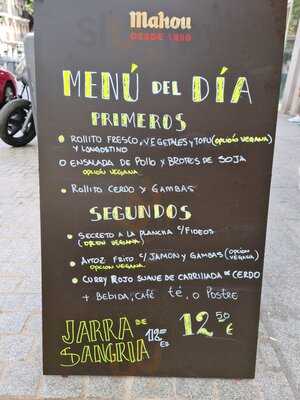 Mahou
DESDE 1890
MENÚ DEL DÍA
PRIMEROS
• ROLLITO FRESCO, VEGETALES Y TOFU (OPCIÓN VEGANA)
Y LANGOSTINO
O ENSALADA DE POLLO Y BROTES DE SOJA
OPCIÓN VEGANA
• ROLLITO CERDO Y GAMBAS
SEGUNDOS
• SECRETO A LA PLANCHA C/FIDEOS
(OPCIÓN VEGANA)
• ARROZ FRITO C/JAMON Y GAMBAS (OPCION VEGANA)
OPCION VEGANA
• CURRY ROJO SUAVE DE CARRILLADA DE CERDO
+ BEBIDA, CAFÉ té, o POSTRE
JARRA DE SANGRIA 12
12,50 €